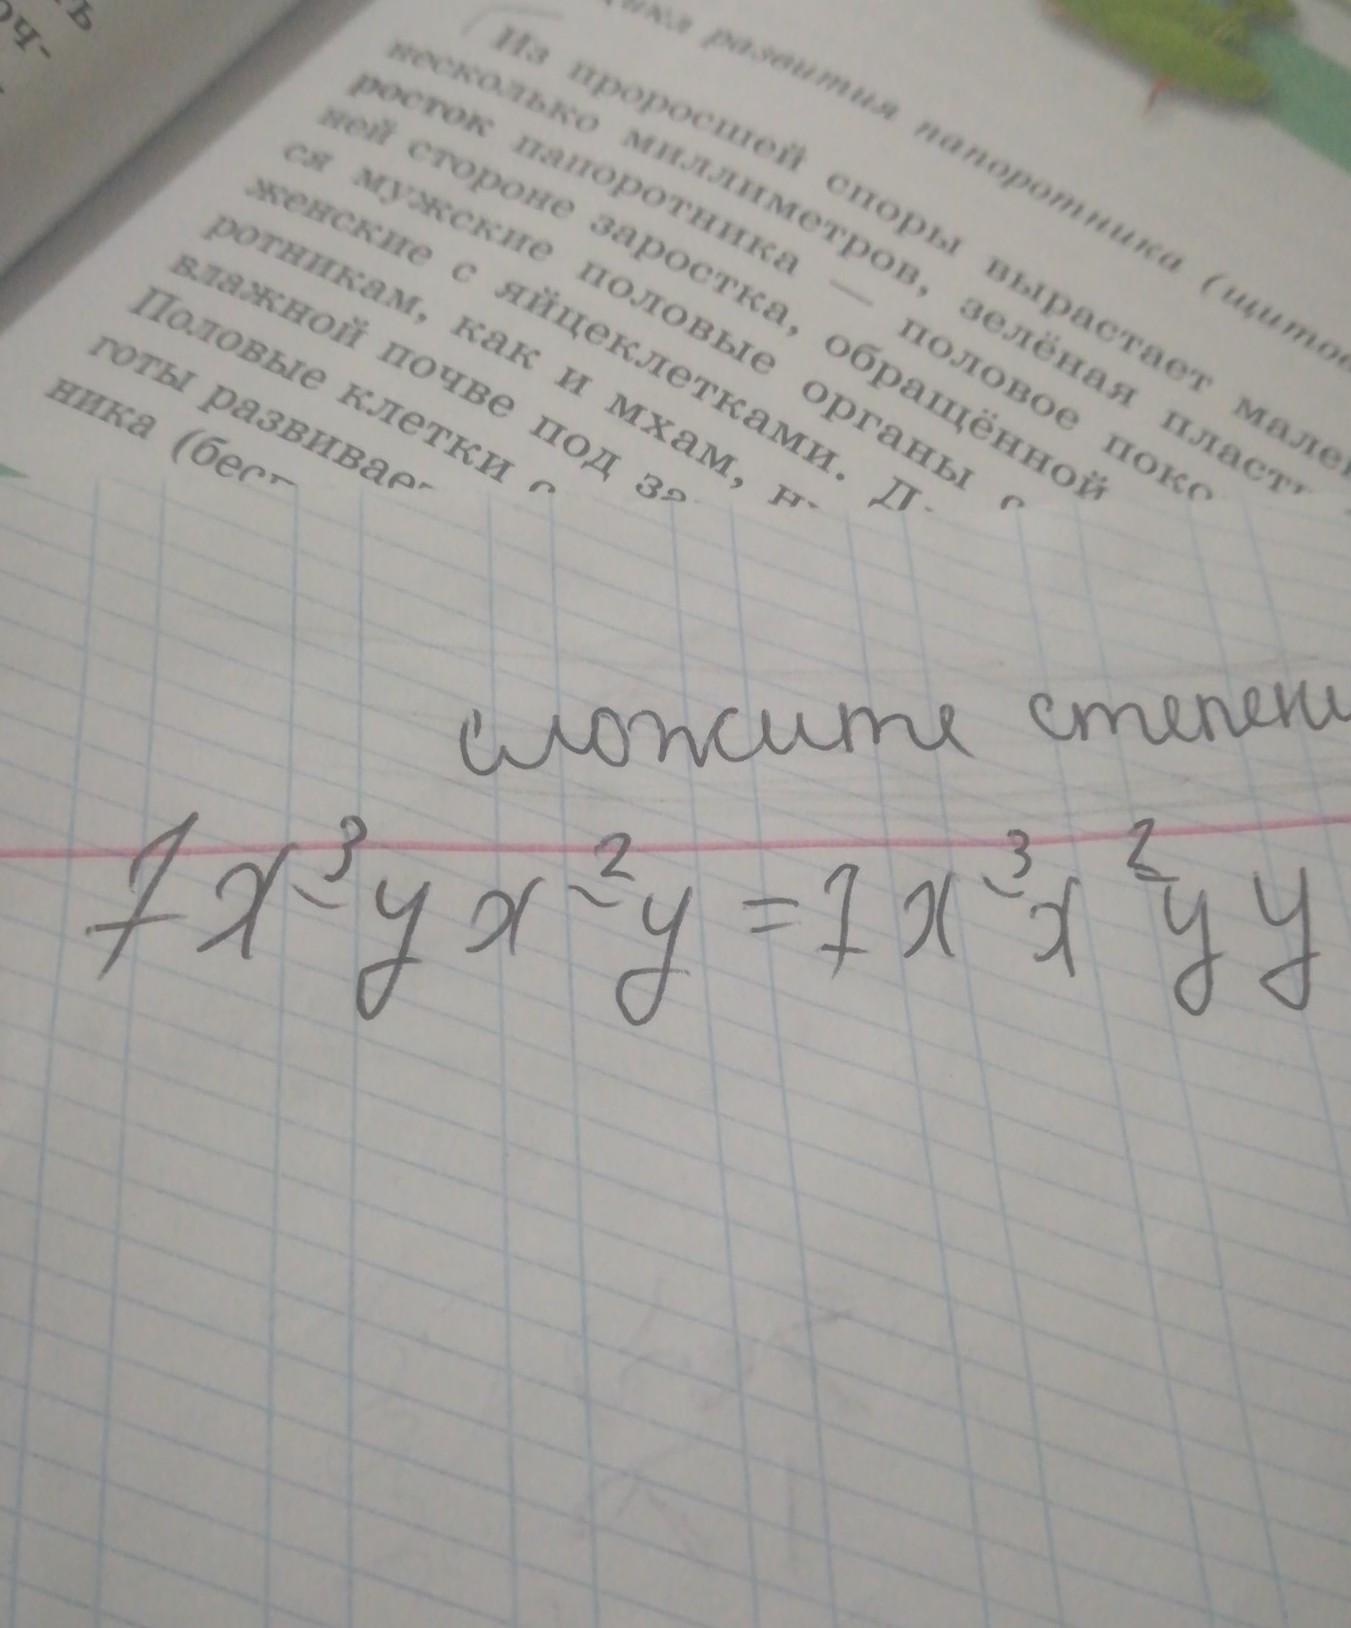 развития папоротника (щитов
Из проросшей споры вырастает мален
несколько миллиметров, зелёная пласти
росток папоротника — половое поко
ней стороне заростка, обращённой
ся мужские половые органы с
женские с яйцеклетками. Д
ротникам, как и мхам, н
влажной почве под за
Половые клетки с
готы развивает
ника (бесп
сложите степени
7x³yx²y=7x³x²yy